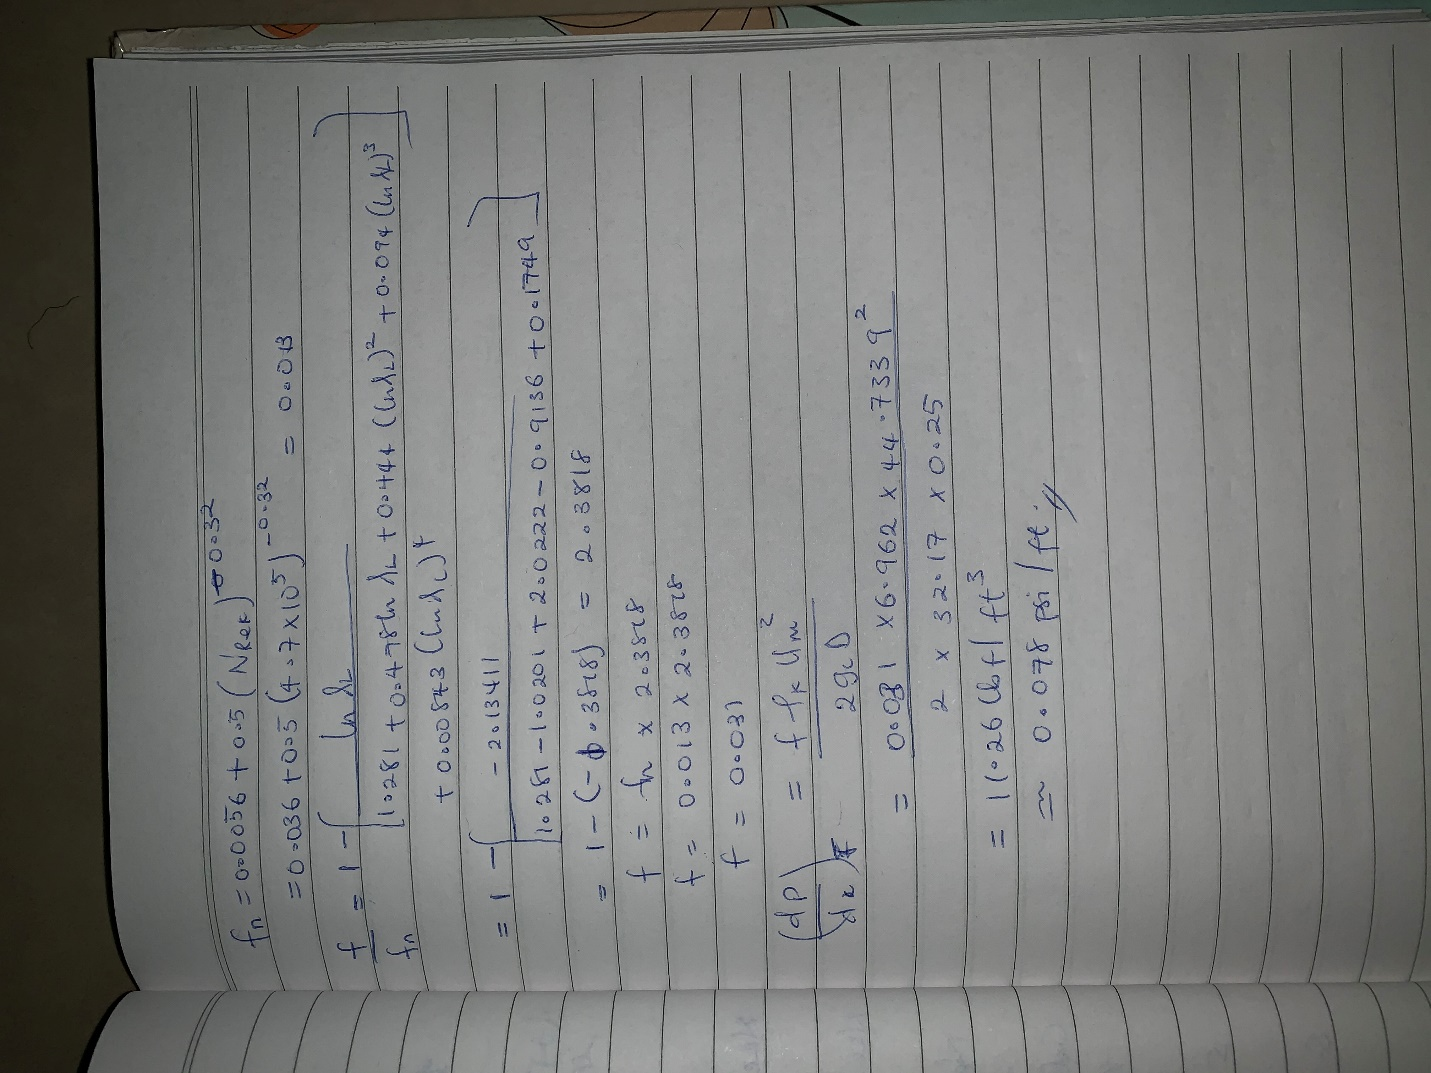 fn = 0.0056 + 0.5 (NRek)^-0.32
= 0.036 + 0.5 (4.7 x 10^5)^-0.32 = 0.013
f/fn = 1 - [ln λL / [1.281 + 0.478 ln λL + 0.444 (ln λL)^2 + 0.094 (ln λL)^3
+ 0.00843 (ln λL)^4
= 1 - [-2.13411 / [1.281 - 1.0201 + 2.0222 - 0.9136 + 0.1749]
= 1 - (-1.3818) = 2.3818
f = fn x 2.3818
f = 0.013 x 2.3818
f = 0.031
(dp/dx)F = f ρk Um^2 / 2gc D
= 0.031 x 6.962 x 44.7339^2
2 x 32.17 x 0.25
= 11.26 lbf/ft^3
≃ 0.078 psi/ft.